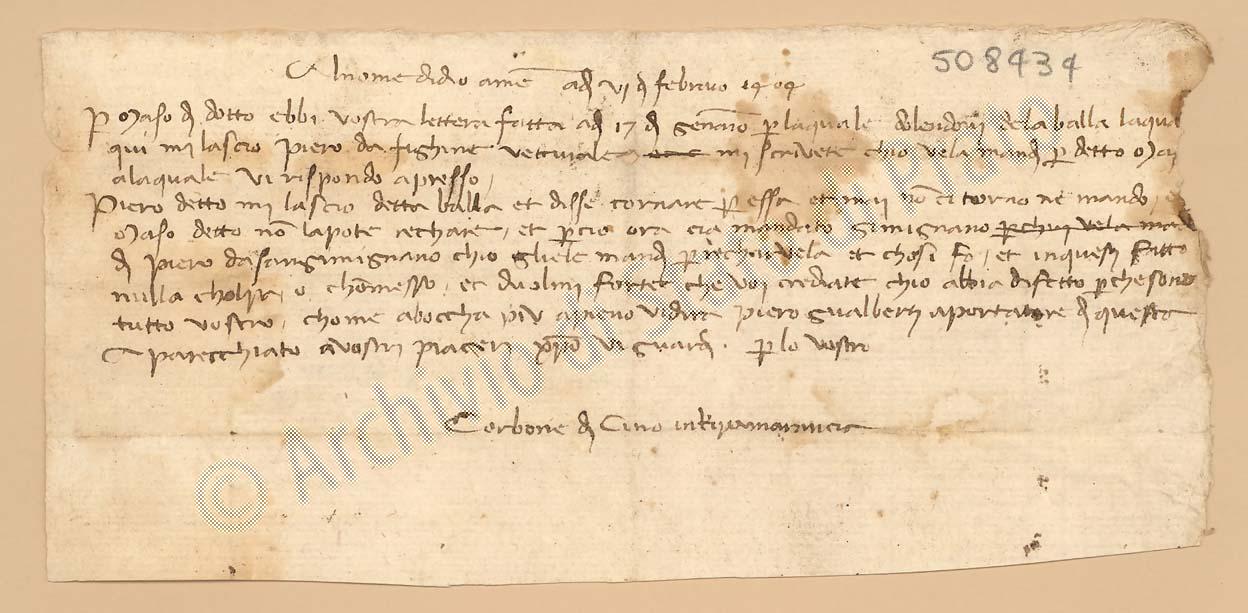 508434
Al nome di dio ame adi vi di febraio 1404
P Maso di dotto ebbi vostra lettera fatta adi 17 di gennaio p laquale dolendovi dela balla laqual
qui mi lascio Piero da fighine vetturale mi scrivete chio vela mandi p detto Maso
alaquale vi rispondo apresso
Piero detto mi lascio detta balla et disse tornare p essa et mai no ci torno ne mando, e
Maso detto no la pote rechare, et p cio ora cia mandato gimignano p chui vela man
di Piero da sangimignano chio gliele mandi p recharvela et chosi fo, et in questi fatti
nulla cholpa o chomesso, et duolmi forte che voi crediate chio abbia difetto p che sono
tutto vostro, chome a boccha piu apieno vi dira Piero gualberti aportatore di questa
Aparecchiato a vostri piaceri xpo vi guardi. p lo vostro
Corbone di Cino
© Archivio di Stato di Prato